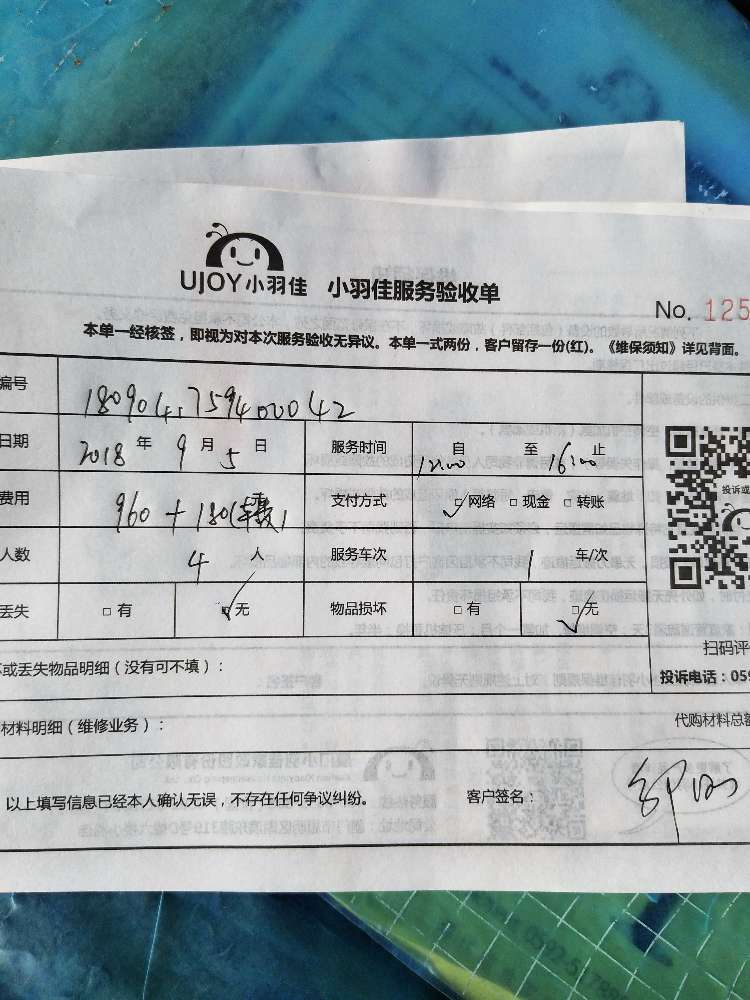 UJOY小羽佳 小羽佳服务验收单
No. 125
本单一经核签，即视为对本次服务验收无异议。本单一式两份，客户留存一份(红)。《维保须知》详见背面。
编号
日期 2018 年 9 月 5 日 服务时间 自 12:00 至 16:00 止
费用 960 + 180( 支付方式 网络 □ 现金 □ 转账
人数 4 人 服务车次 1 车/次
丢失 □ 有 无 物品损坏 □ 有 □ 无
投诉或
扫码评
投诉电话：059
或丢失物品明细（没有可不填）：
材料明细（维修业务）： 代购材料总额
以上填写信息已经本人确认无误，不存在任何争议纠纷。 客户签名：